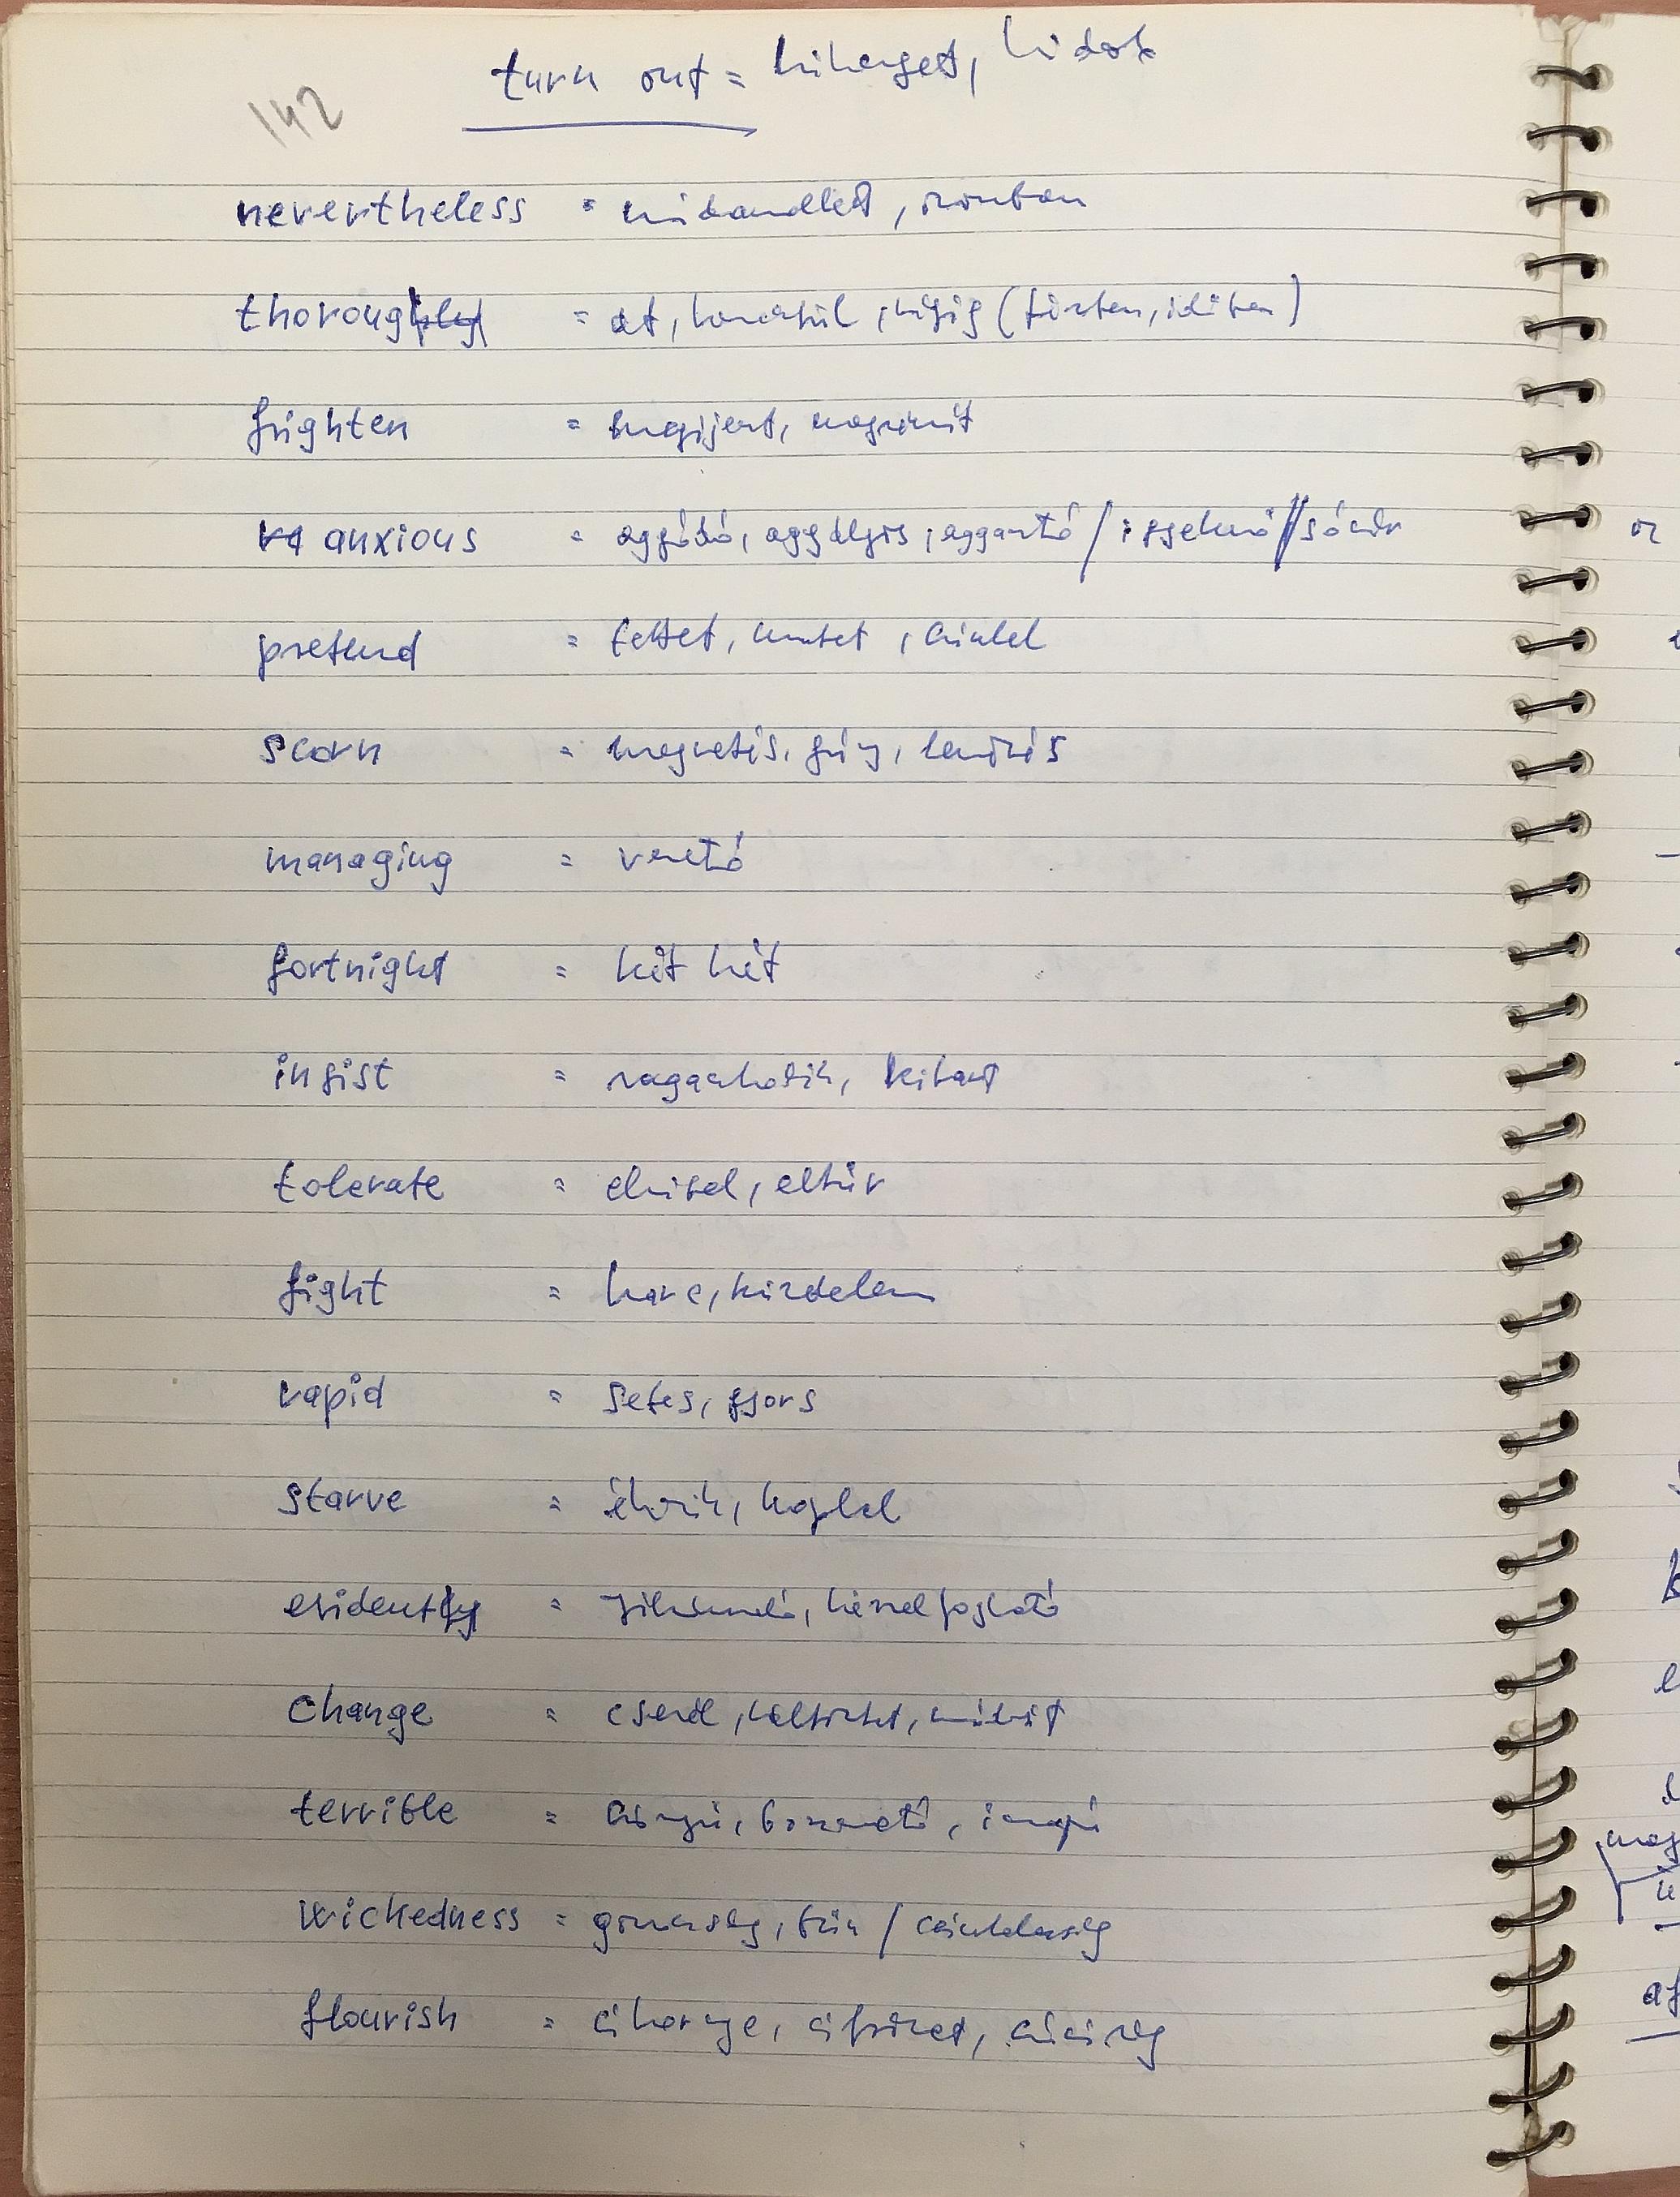 142
turn out = kikerget, kidob
nevertheless = mindamellett, azonban
thorough = át, keresztül, végig (térben, időben)
frighten = megijeszt, megrémít
anxious = aggódó, aggályos, aggasztó / igyekvő // sóvár
pretend = tettet, mutet, színlel
scorn = megvetés, gúny, lenézés
managing = vezető
fortnight = két hét
insist = ragaszkodik, kitart
tolerate = elvisel, eltűr
fight = harc, küzdelem
rapid = sebes, gyors
starve = éhezik, koplal
evidently = nyilvánvaló, kézzelfogható
change = cserél, változtat, módosít
terrible = szörnyű, borzasztó, iszonyú
wickedness = gonoszság, bűn / csintalanság
flourish = cikornya, cifrázat,